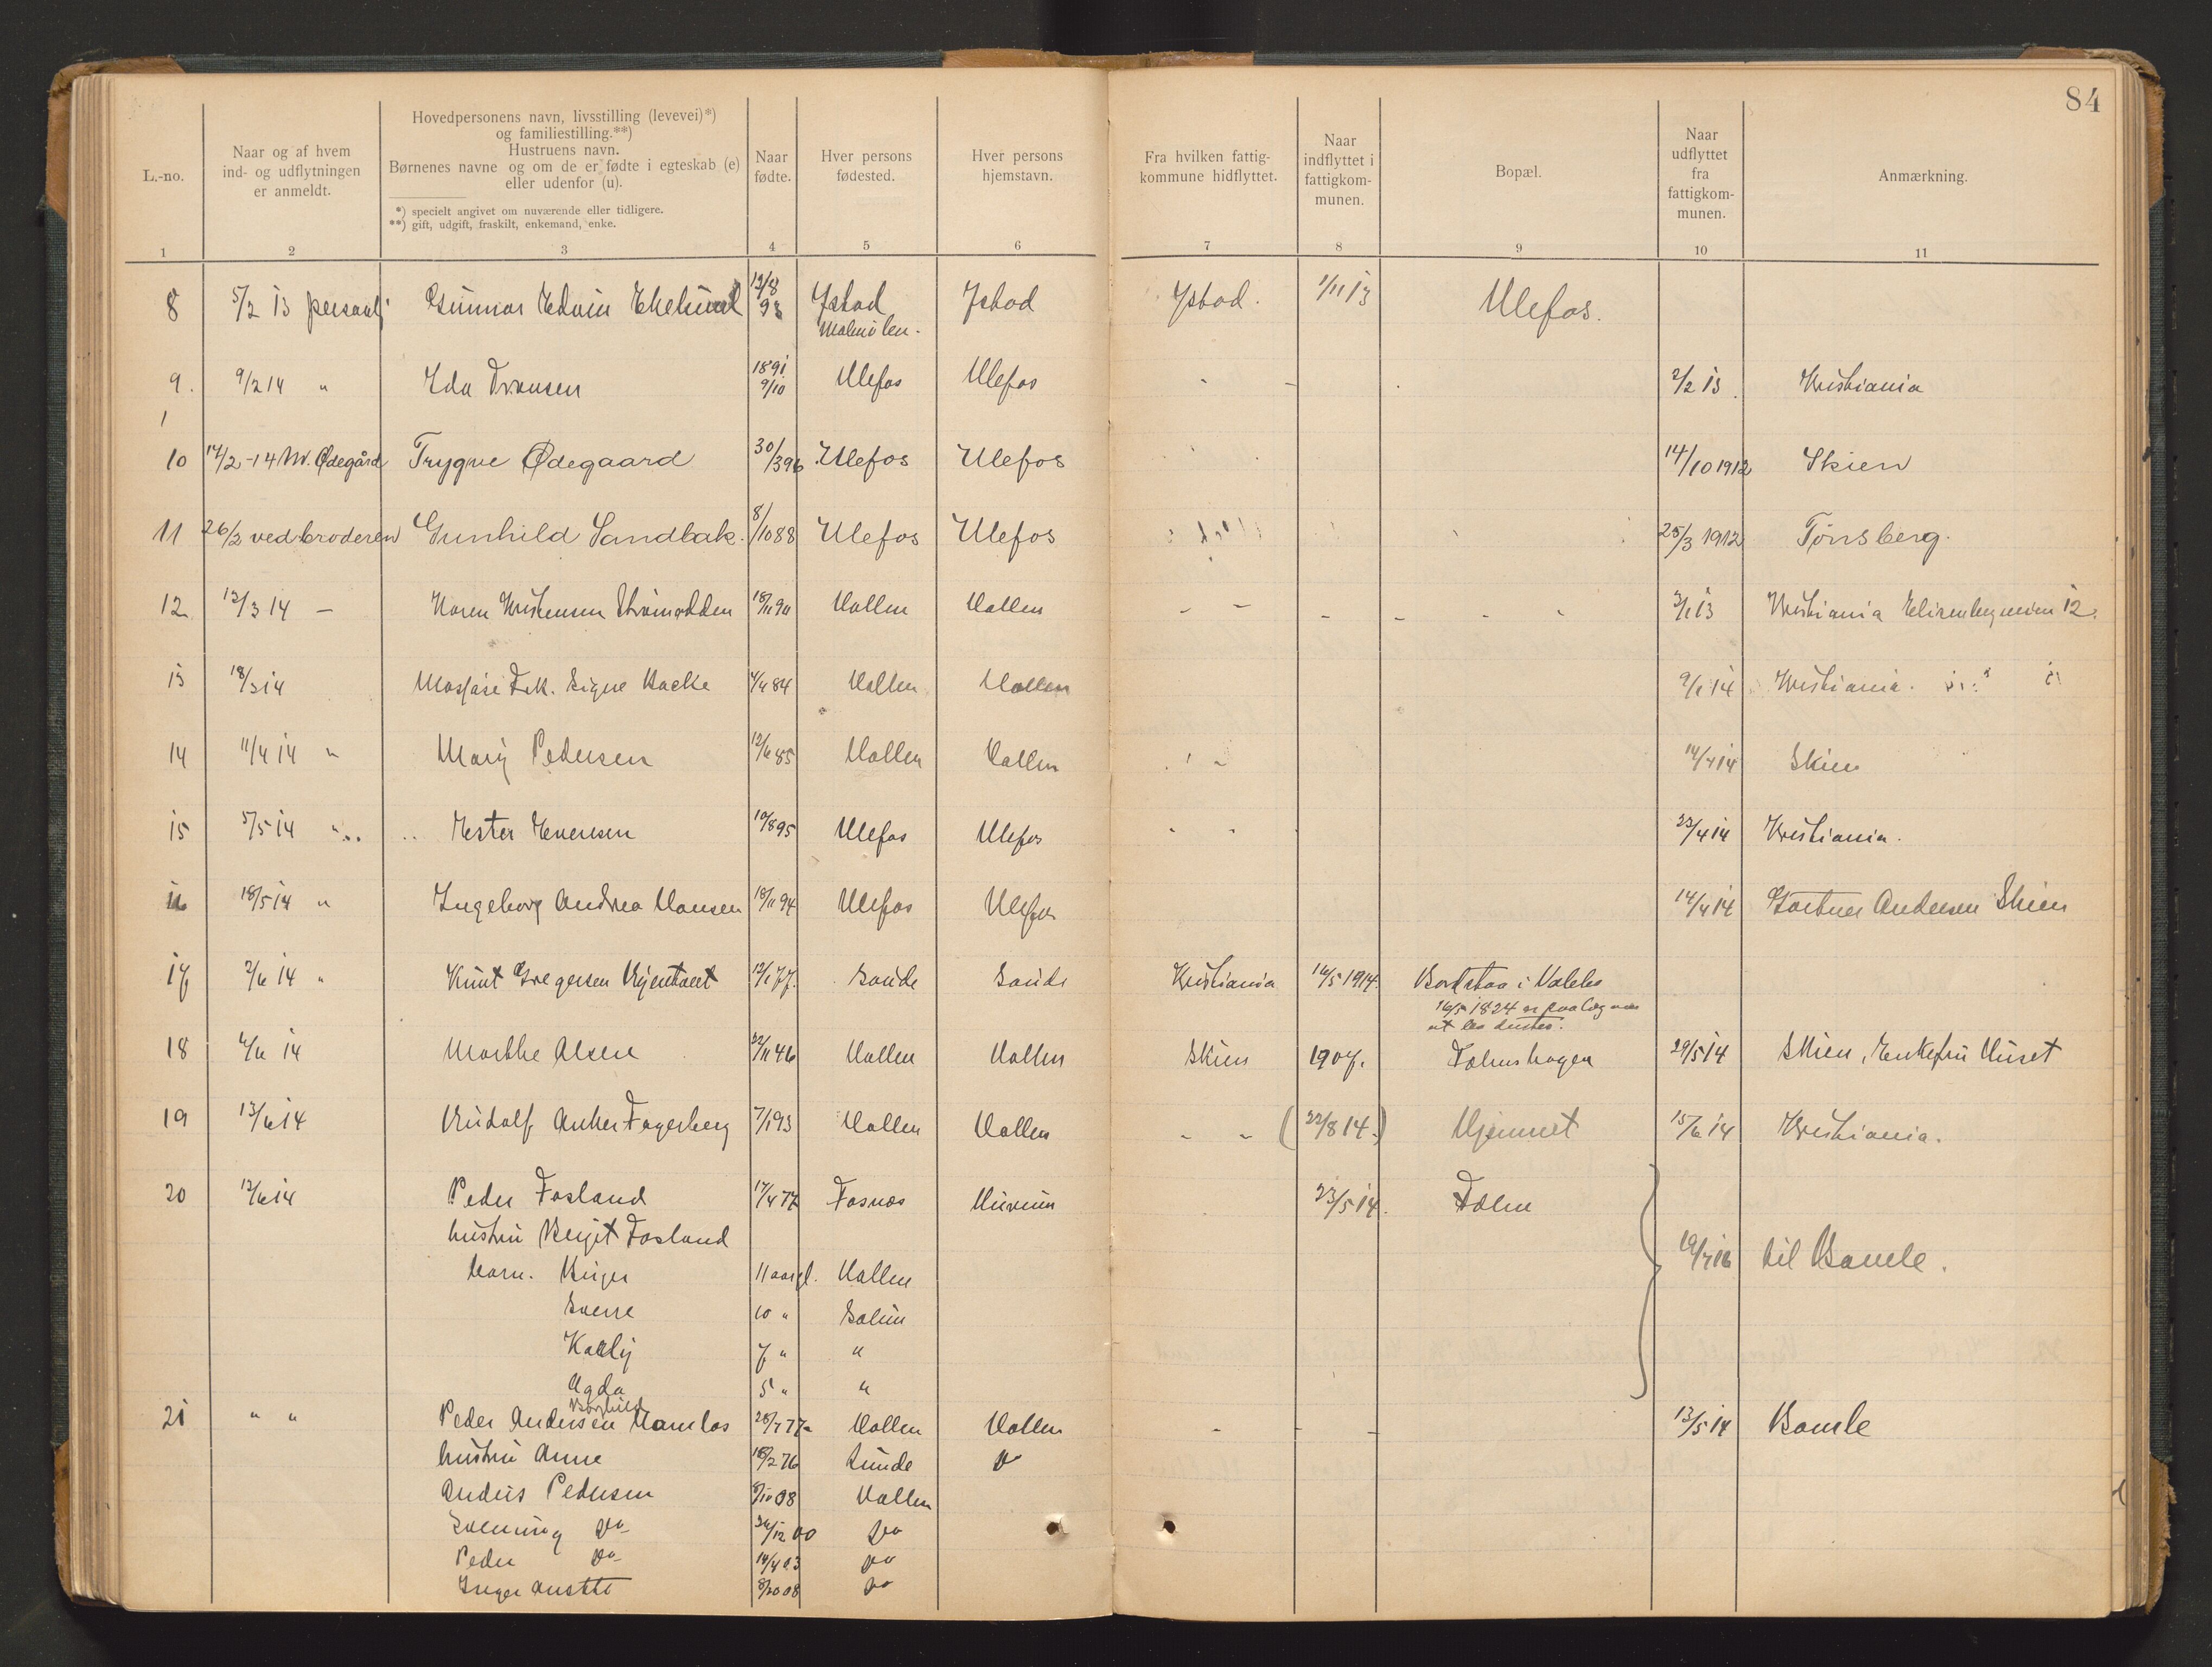 84
L.-no.
Naar og af hvem
ind- og udflytningen
er anmeldt.
Hovedpersonens navn, livsstilling (levevei)*)
og familiestilling.**)
Hustruens navn.
Børnenes navne og om de er fødte i egteskab (e)
eller udenfor (u).
*) specielt angivet om nuværende eller tidligere.
**) gift, ugift, fraskilt, enkemand, enke.
Naar
fødte.
Hver persons
fødested.
Hver persons
hjemstavn.
Fra hvilken fattig-
kommune hidflyttet.
Naar
indflyttet i
fattigkom-
munen.
Bopæl.
Naar
udflyttet
fra
fattigkom-
munen.
Anmærkning.
1 2 3 4 5 6 7 8 9 10 11
8 5/2 13 personl. Gunnar Edvin Ekelund 13/8 93 Ystad Ystad Ystad. 1/11 13 Ulefos.
Malmö len.
9. 9/2 14 " Ida Fransen 1891 9/10 Ulefos Ulefos - - 2/2 13 Kristiania
10 14/2-14 Ødegård Trygve Ødegaard 30/3 96 Ulefos Ulefos 14/10 1912 Skien
11 26/2 ved broderen Gunhild Sandbak. 8/10 88 Ulefos Ulefos 25/3 1912 Tønsberg.
12 12/3 14 - Karen Kristensen 18/11 90 Hollen Hollen - - 3/1 13 Kristiania 12.
13 18/3 14 Frk. Signe Backe 4/4 84 Hollen Hollen 9/1 14 Kristiania.
14 11/4 14 " Mary Pedersen 12/6 85 Hollen Hollen 14/4 14 Skien
15 5/5 14 " Ester Evensen 10/8 95 Ulefos Ulefos 23/4 14 Kristiania.
16 18/5 14 " Ingeborg Andrea Hansen 18/11 94 Ulefos Ulefos 14/4 14 Gartner Andersen Skien
17 2/6 14 " Knut Gregersen 12/1 77. Sande Sande Kristiania 16/5 1914.
18 4/6 14 Marthe Olsen 22/11 46 Hollen Hollen Skien 1907. Holmshagen 29/5 14 Skien, Enkefru
19 13/6 14 Rudolf Anker Fagerberg 7/1 93 Hollen Hollen - - (22/8 14.) Hjemmet 15/6 14 Kristiania.
20 12/6 14 Peder Fosland 17/4 77 Fosnæs 23/5 14. Holm
hustru Bergit Fosland
barn. Birger 11 aar gl. Hollen 19/7 16 til Bamle.
Sverre 10 " Solum
Kally 7 " "
Agda 5 " "
Borghild
21 " " Peder Andersen Namløs 28/7 77 Hollen Hollen - - - 13/5 14 Bamle
hustru Anne 18/2 76 Lunde do
Anders Pedersen 8/10 98 Hollen
Svenung do 30/12 00 do
Peder do 14/4 03 do
Inger Anette 8/10 08 do